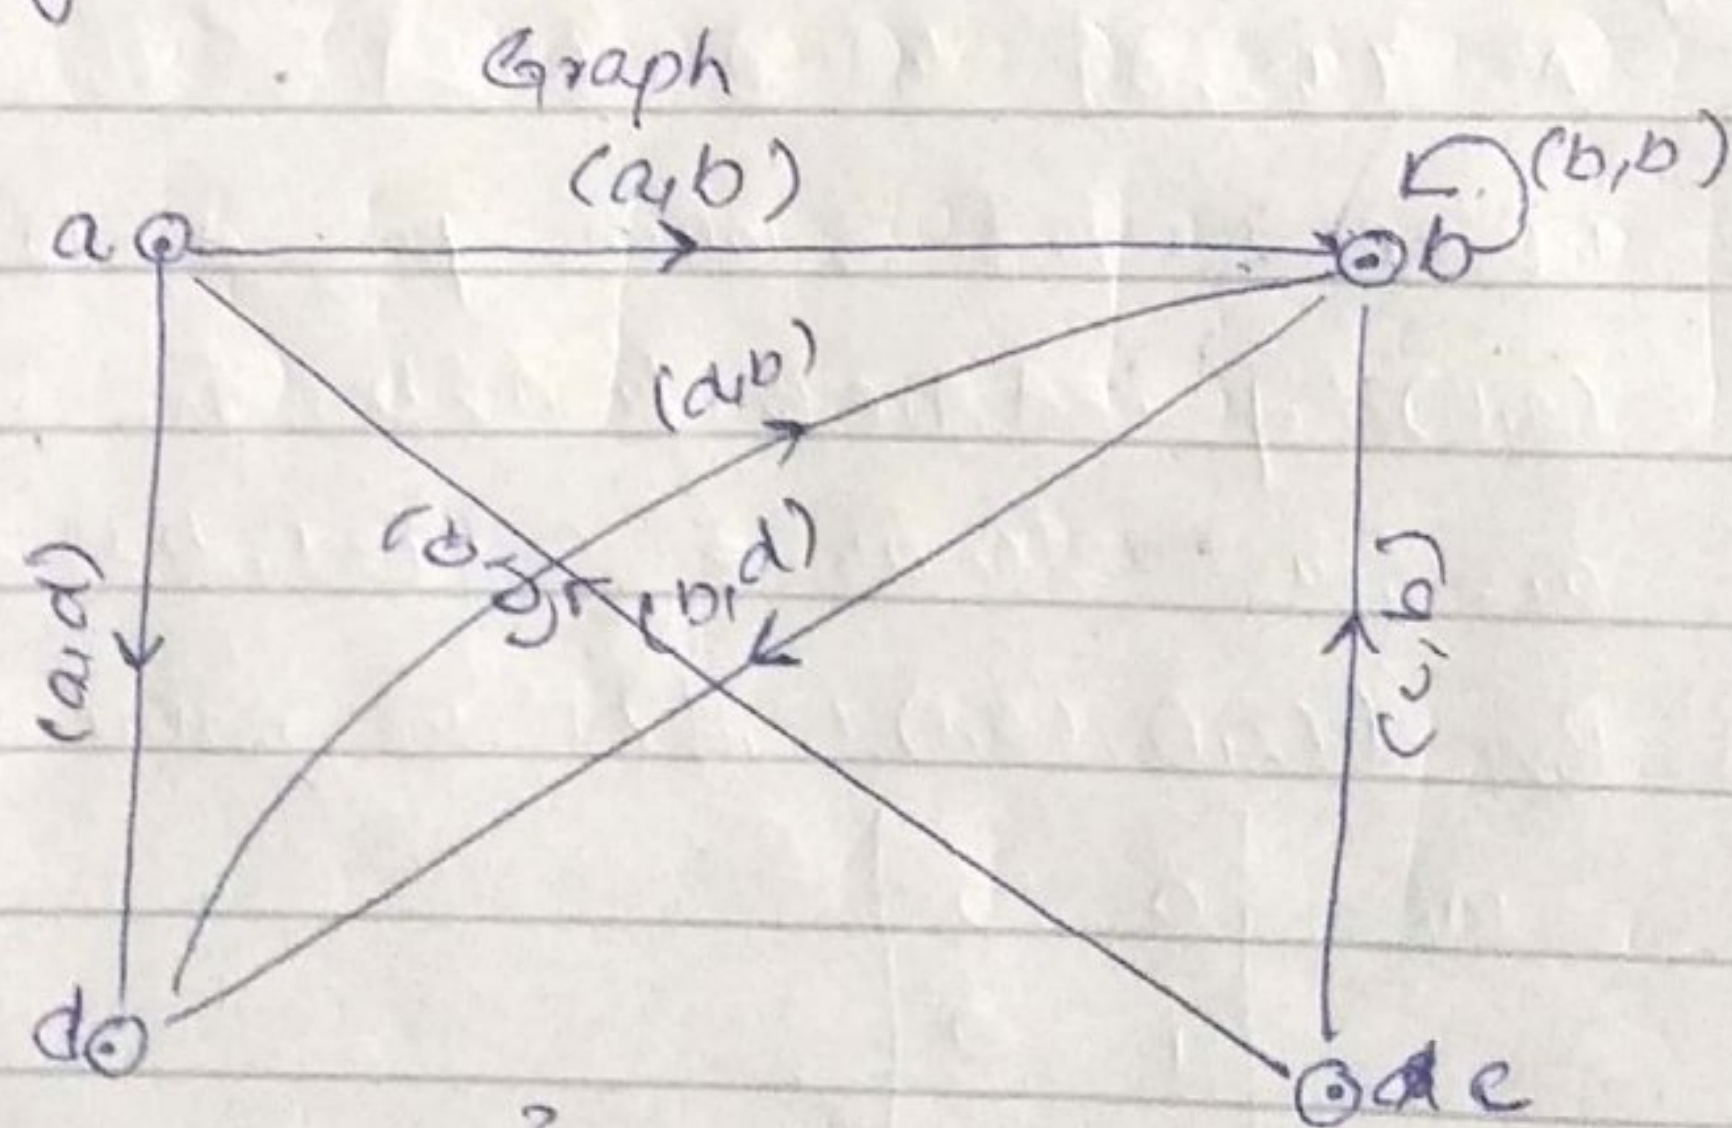 Graph
(a,b)
(b,b)
a
b
(d,b)
(b,d)
(a,d)
(c,b)
d
c